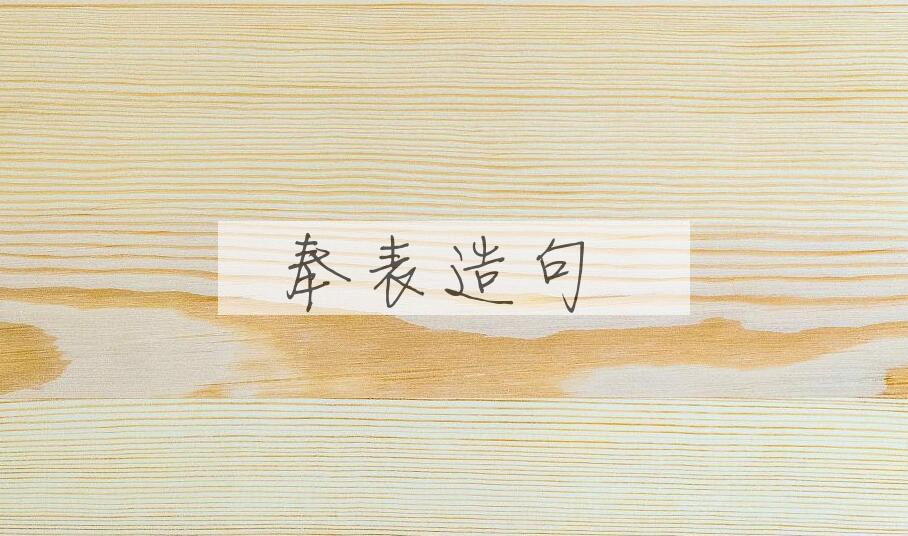 奉表造句